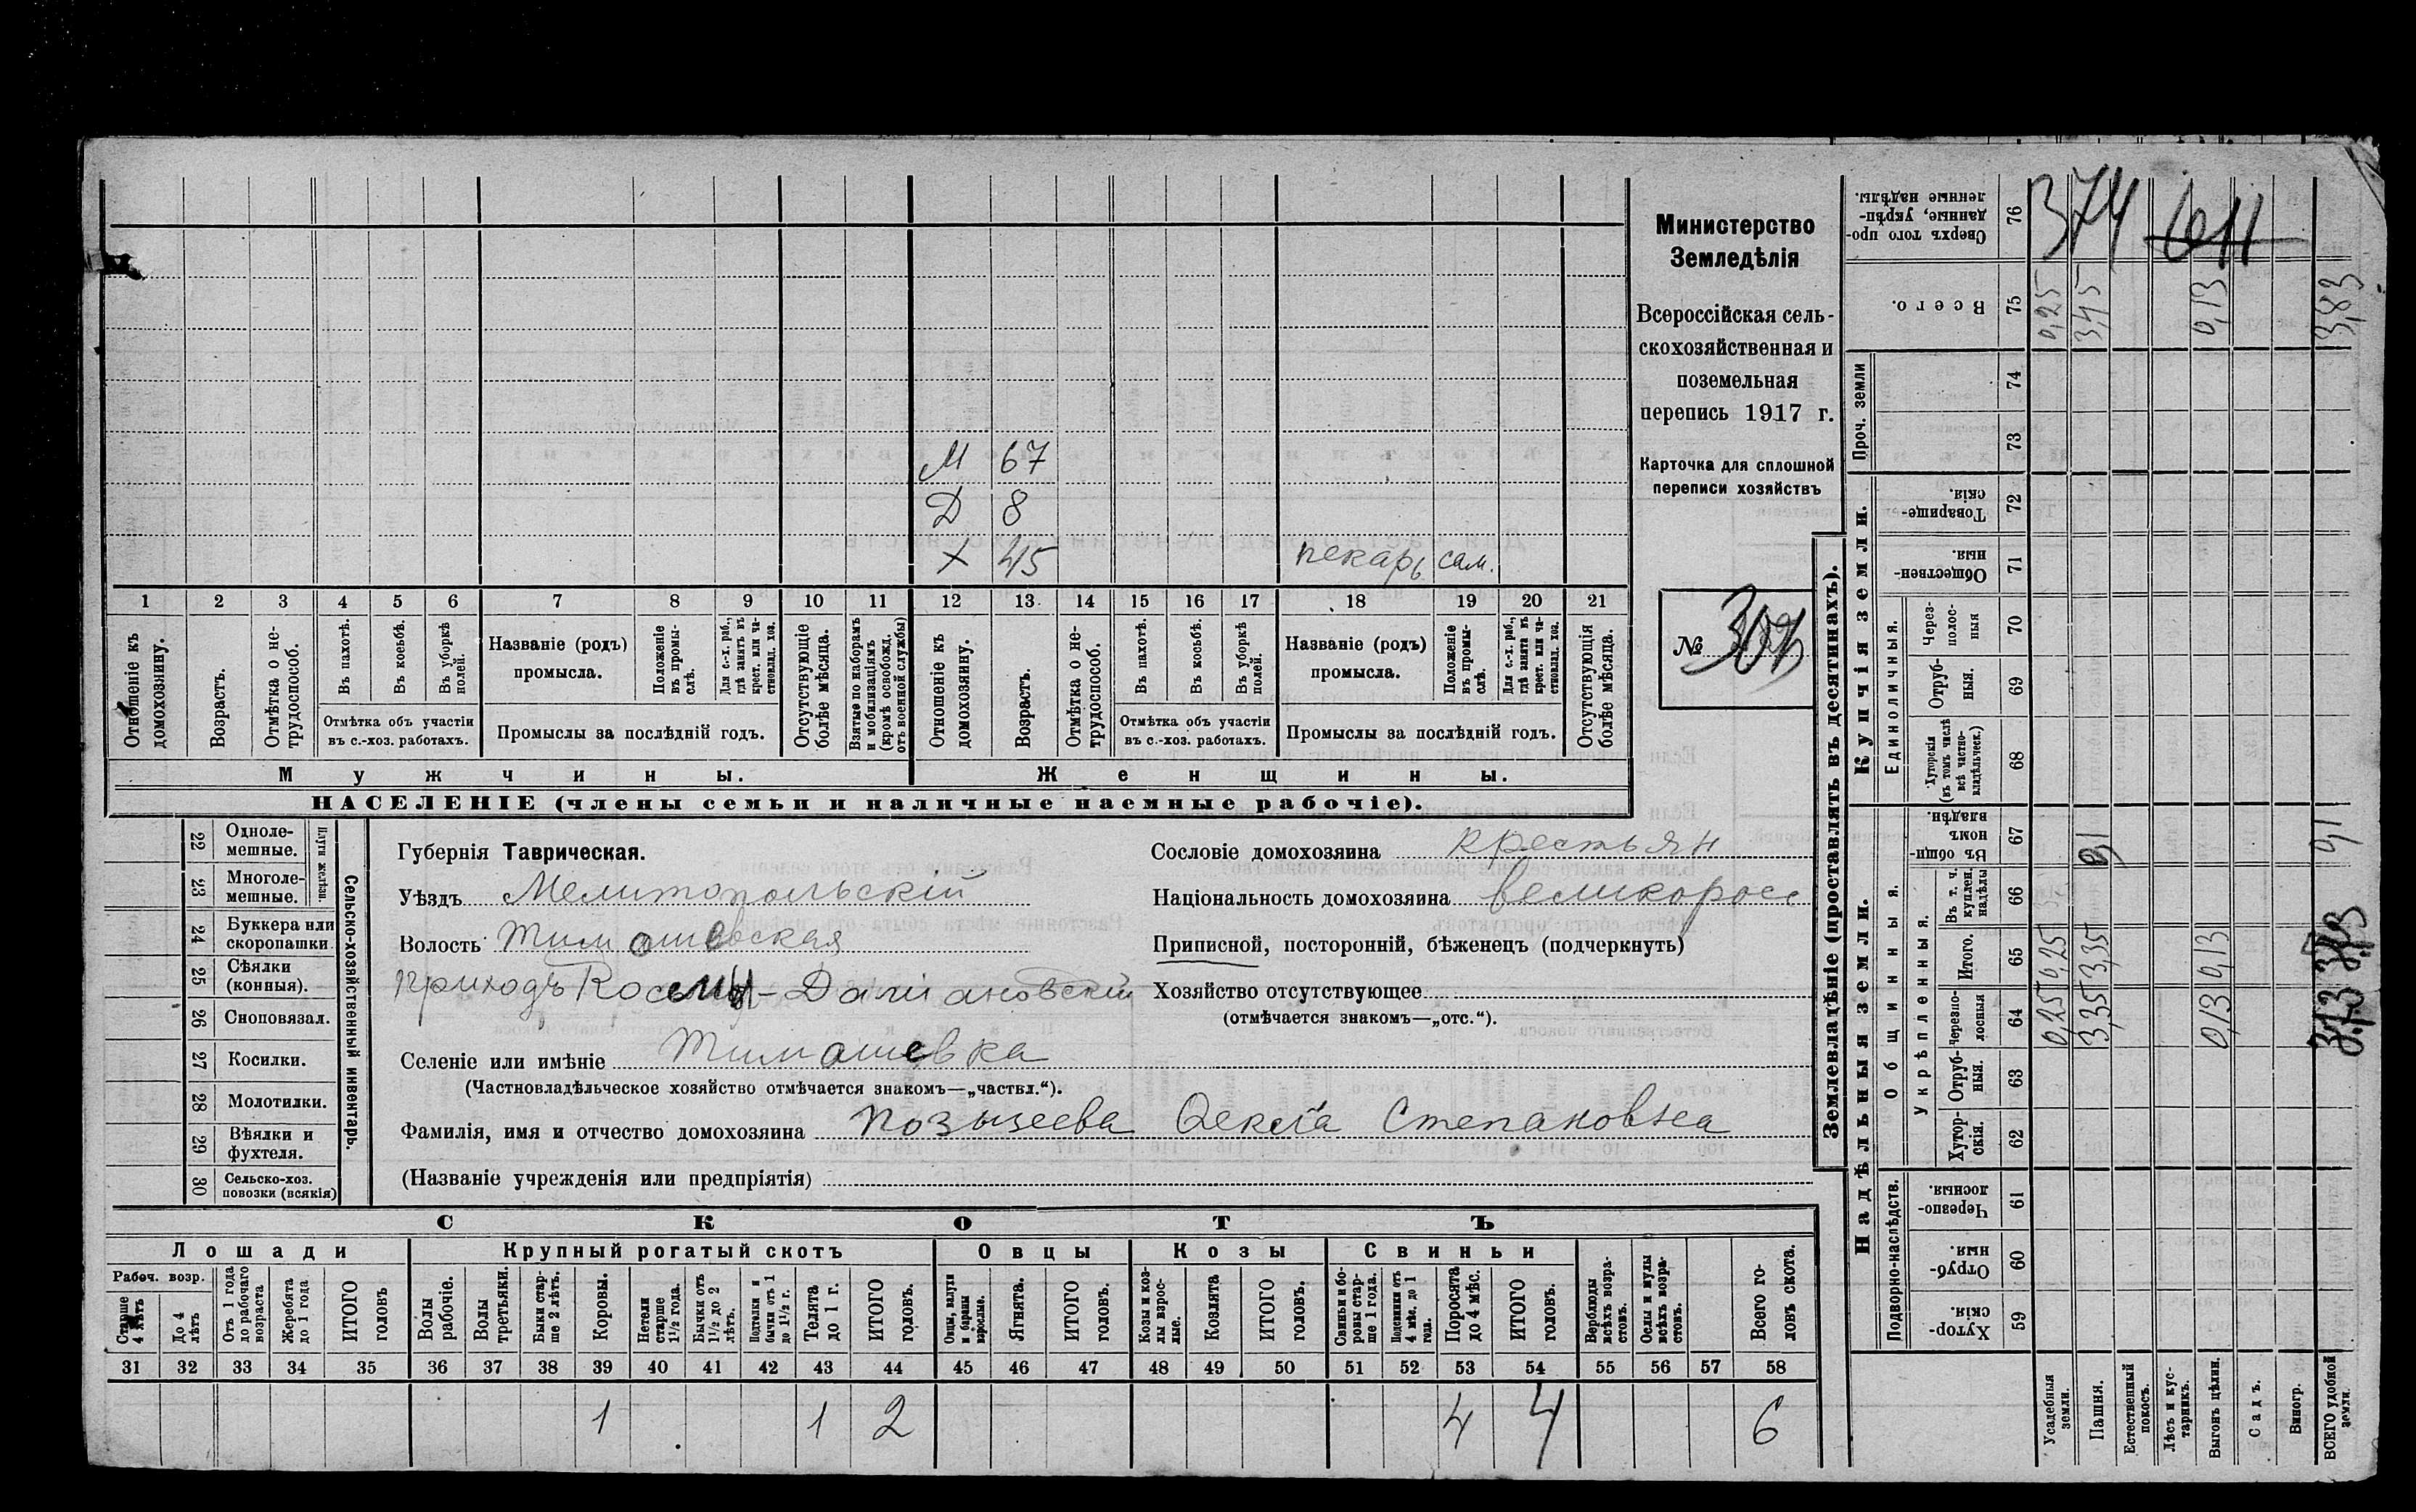 М 67
Д 8
Х 45 пекарь сам.
1 2 3 4 5 6 7 8 9 10 11 12 13 14 15 16 17 18 19 20 21
Отношеніе къ домохозяину.
Возрастъ.
Отмѣтка о не-трудоспособ.
Въ пахотѣ.
Въ косьбѣ.
Въ уборкѣ полей.
Отмѣтка объ участіи въ с.-хоз. работахъ.
Названіе (родъ) промысла.
Положеніе въ промы-слѣ.
Для с.-х. раб., гдѣ занятъ въ крест. или ча-стновлад. хоз.
Промыслы за послѣдній годъ.
Отсутствующіе болѣе мѣсяца.
Взятые по наборамъ и мобилизаціямъ (кромѣ освобожд. отъ военной службы)
Отношеніе къ домохозяину.
Возрастъ.
Отмѣтка о не-трудоспособ.
Въ пахотѣ.
Въ косьбѣ.
Въ уборкѣ полей.
Отмѣтка объ участіи въ с.-хоз. работахъ.
Названіе (родъ) промысла.
Положеніе въ промы-слѣ.
Для с.-х. раб., гдѣ занята въ крест. или ча-стновлад. хоз.
Промыслы за послѣдній годъ.
Отсутствующія болѣе мѣсяца.
Мужчины.
Женщины.
НАСЕЛЕНІЕ (члены семьи и наличные наемные рабочіе).
Министерство
Земледѣлія
Всероссійская сель-
скохозяйственная и
поземельная
перепись 1917 г.
Карточка для сплошной
переписи хозяйствъ
№
Сельско-хозяйственный инвентарь.
Плуги желѣзн.
22 Одноле-мешные.
23 Многоле-мешные.
24 Буккера или скоропашки
25 Сѣялки (конныя).
26 Сноповязал.
27 Косилки.
28 Молотилки.
29 Вѣялки и фухтеля.
30 Сельско-хоз. повозки (всякія)
Губернія Таврическая.
Уѣздъ Мелитопольскій
Волость Тимошевская
приходъ Косьмы-Даміановскій
Селеніе или имѣніе Тимошевка
(Частновладѣльческое хозяйство отмѣчается знакомъ—„частвл.“).
Фамилія, имя и отчество домохозяина Степановна
(Названіе учрежденія или предпріятія)
Сословіе домохозяина крестьян
Національность домохозяина великоросс
Приписной, посторонній, бѣженецъ (подчеркнуть)
Хозяйство отсутствующее
(отмѣчается знакомъ—„отс.“).
СКОТЪ
Лошади
Крупный рогатый скотъ
Овцы
Козы
Свиньи
Рабоч. возр.
Старше 4 лѣтъ
До 4 лѣтъ
Отъ 1 года до рабочаго возраста
Жеребята до 1 года
ИТОГО головъ
Волы рабочіе.
Волы третьяки.
Быки стар-ше 2 лѣтъ.
Коровы.
Нетели старше 1½ года.
Бычки отъ 1½ до 2 лѣтъ.
Подтелки и бычки отъ 1 до 1½ г.
Телята до 1 г.
ИТОГО головъ.
Овцы, валухи и бараны взрослые.
Ягнята.
ИТОГО головъ.
Козы и коз-лы взрос-лые.
Козлята
ИТОГО головъ.
Свиньи и бо-ровы стар-ше 1 года.
Подсвинки отъ 4 мѣс. до 1 года.
Поросята до 4 мѣс.
ИТОГО головъ.
Верблюды всѣхъ возра-стовъ.
Ослы и мулы всѣхъ возра-стовъ.
Всего го-ловъ скота.
31 32 33 34 35 36 37 38 39 40 41 42 43 44 45 46 47 48 49 50 51 52 53 54 55 56 57 58
1 1 2 4 4 6
Землевладѣніе (проставлять въ десятинахъ).
Надѣльныя земли.
Купчія земли.
Проч. земли
Подворно-наслѣдств.
Общинныя.
Укрѣпленныя.
Единоличныя.
Сверхъ того про-данные, укрѣп-ленные надѣлы. 76 374
Всего. 75 0,25 3,45 0,13 3,83
74
73
Товарище-скія. 72
Обществен-ныя. 71
Через-полос-ныя 70
Отруб-ныя. 69
Хуторскія (въ томъ числѣ всѣ частно-владѣльческ.) 68
Въ общи-номъ владѣн. 67 0,1 0,1
Въ т. ч. куплен. надѣлы 66
Итого. 65 0,25 3,35 0,13
Черезпо-лосныя 64 0,25 3,35 0,13
Отруб-ныя. 63
Хутор-скія. 62
Черезпо-лосныя. 61
Отруб-ныя. 60
Хутор-скія. 59
Усадебныя земли.
Пашня.
Естественный покосъ.
Лѣсъ и кус-тарникъ.
Выгонъ цѣлин.
Садъ.
Виногр.
ВСЕГО удобной земли.